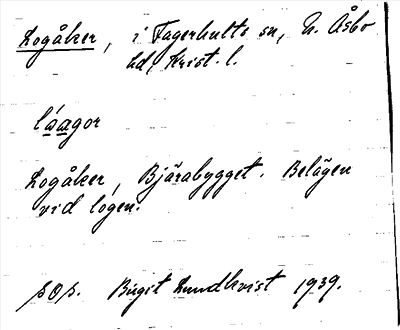 Logåker, i Fagerhults sn, N. Åsbo
hd, Krist. l.
lóagor
Logåker, Bjärabygget. Belägen
vid logen.
Birgit Lundkvist 1939.